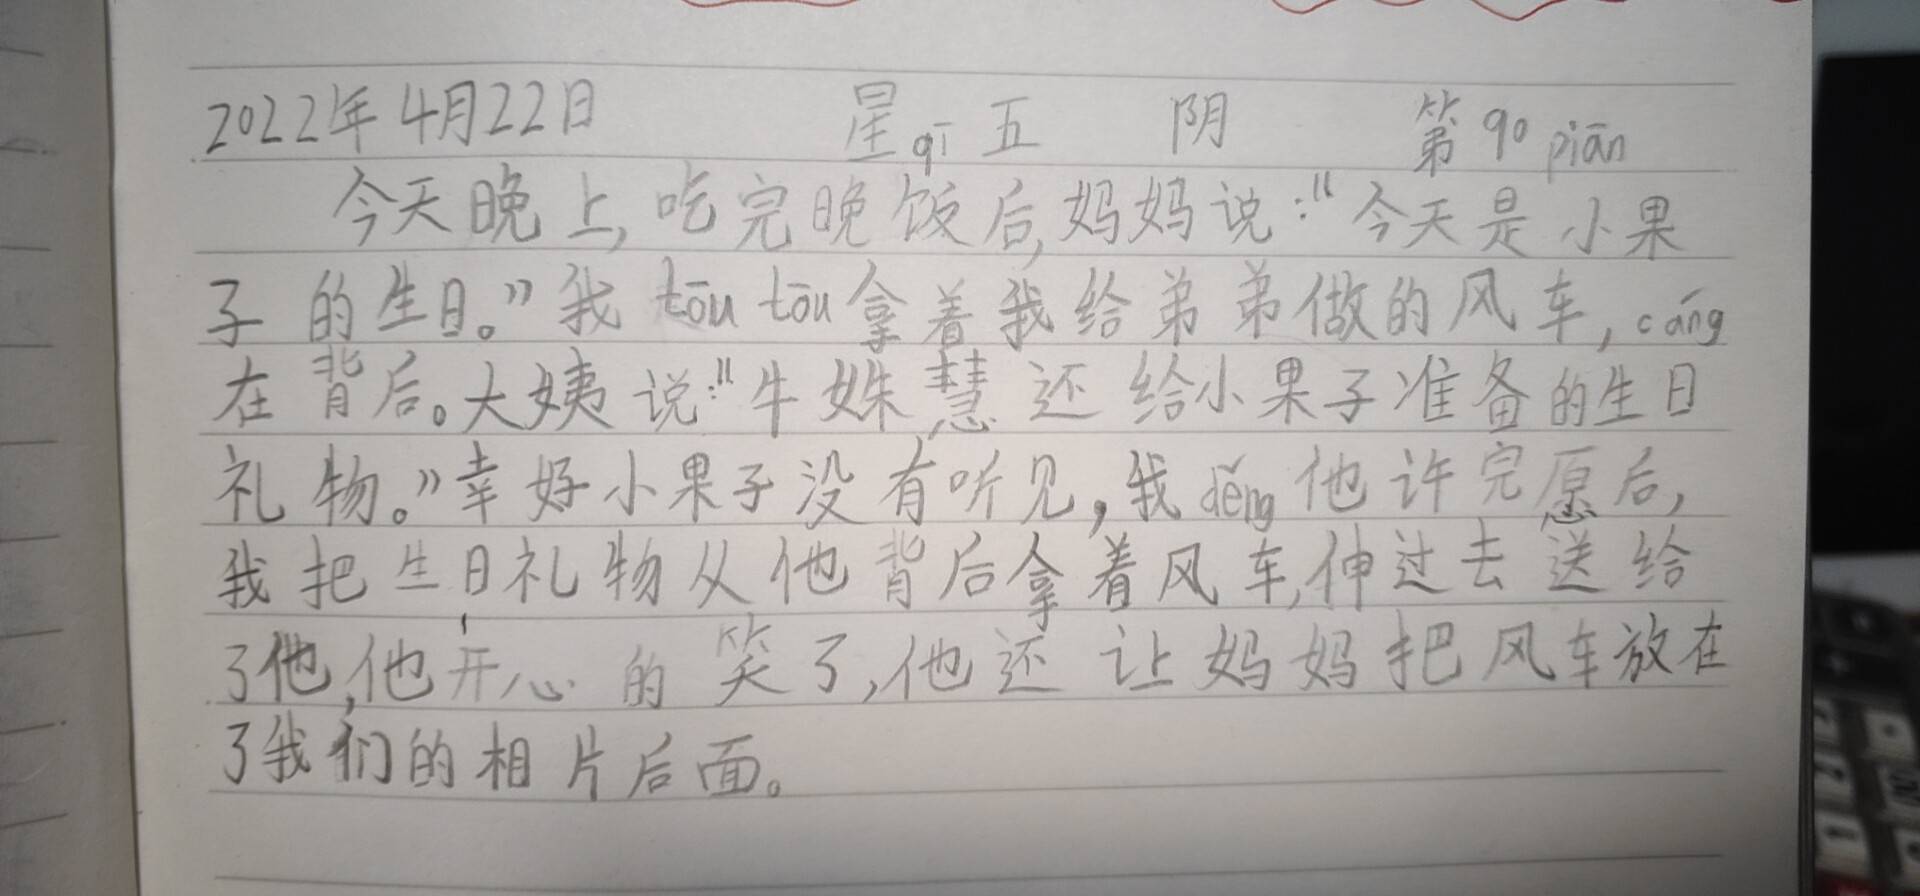 2022年4月22日 星qī五 阴 第90 piān
今天晚上,吃完晚饭后,妈妈说:“今天是小果
子的生日。”我tōu tōu拿着我给弟弟做的风车,cáng
在背后。大姨说:“牛姝慧还给小果子准备的生日
礼物。”幸好小果子没有听见,我děng他许完愿后,
我把生日礼物从他背后拿着风车,伸过去送给
了他,他开心的笑了,他还让妈妈把风车放在
了我们的相片后面。